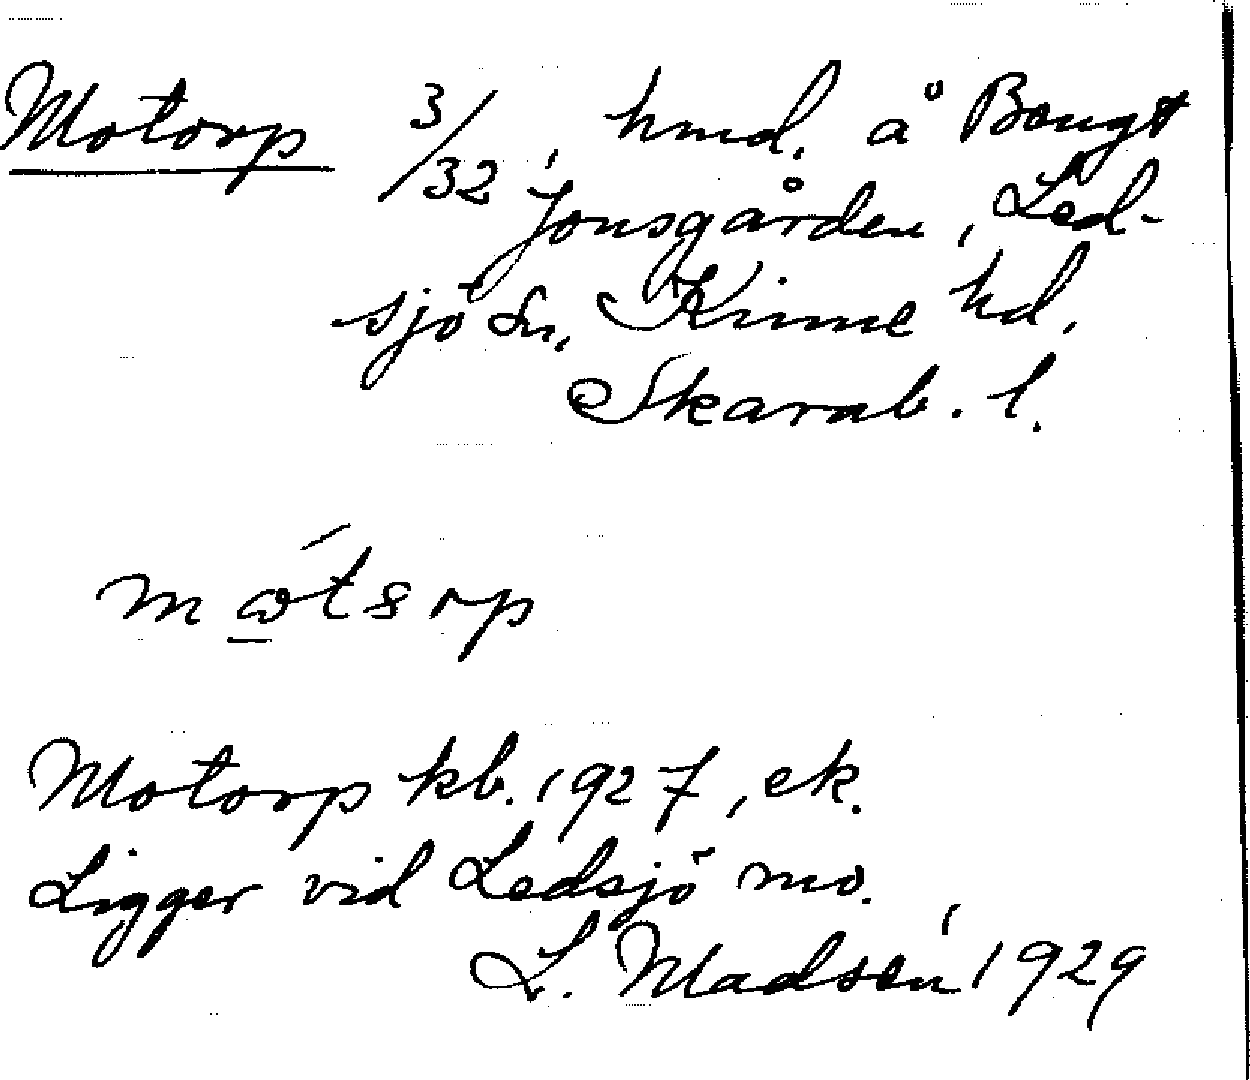 Motorp 3/32, hmd. å Bengt
Jonsgården, Led-
sjö sn, Kinne hd,
Skarab. l.
Motorp kb. 1927, ek.
Ligger vid Ledsjö mo.
L. Madsén 1929